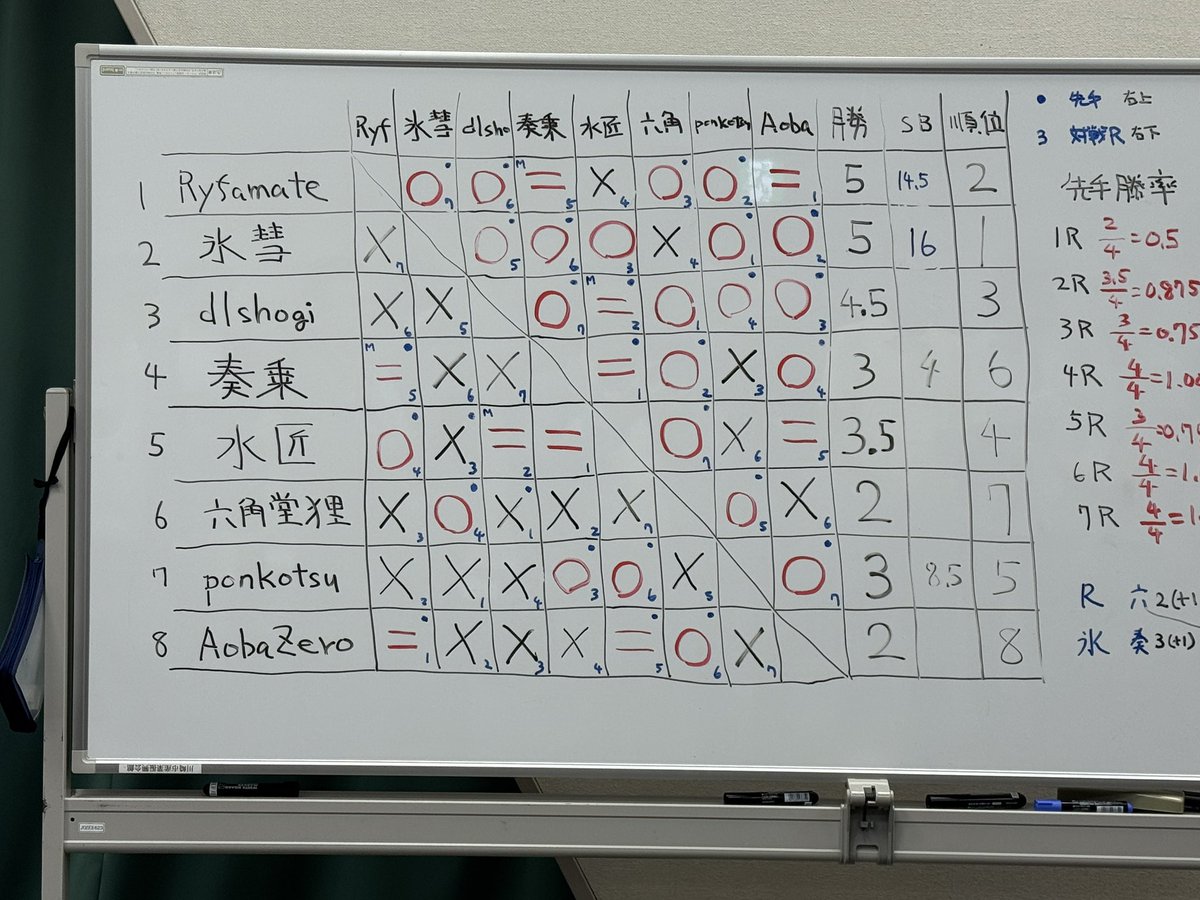 Ryf 氷彗 dlsho 奏乗 水匠 六角 ponkotsu Aoba 勝 SB 順位
1 Ryfamate ○7 ○6 M =5 X4 ○3 ○2 =1 5 14.5 2
2 氷彗 X7 ○5 ○6 ○3 X4 ○1 ○2 5 16 1
3 dlshogi X6 X5 ○7 M =2 ○1 ○4 ○3 4.5 3
4 奏乗 M =5 X6 X7 =1 ○2 X3 ○4 3 4 6
5 水匠 ○4 X3 M =2 =1 ○7 X6 =5 3.5 4
6 六角堂狸 X3 ○4 X1 X2 X7 ○5 X6 2 7
7 ponkotsu X2 X1 X4 ○3 ○6 X5 ○7 3 8.5 5
8 AobaZero =1 X2 X3 X4 =5 ○6 X7 2 8
• 先手 右上
3 対戦R 右下
先手勝率
1R 2/4=0.5
2R 3.5/4=0.875
3R 3/4=0.75
4R 4/4=1.00
5R 3/4=0.7
6R 4/4=1.
7R 4/4=1
R 六2(+1
氷 奏3(+1)
川崎市産業振興会館